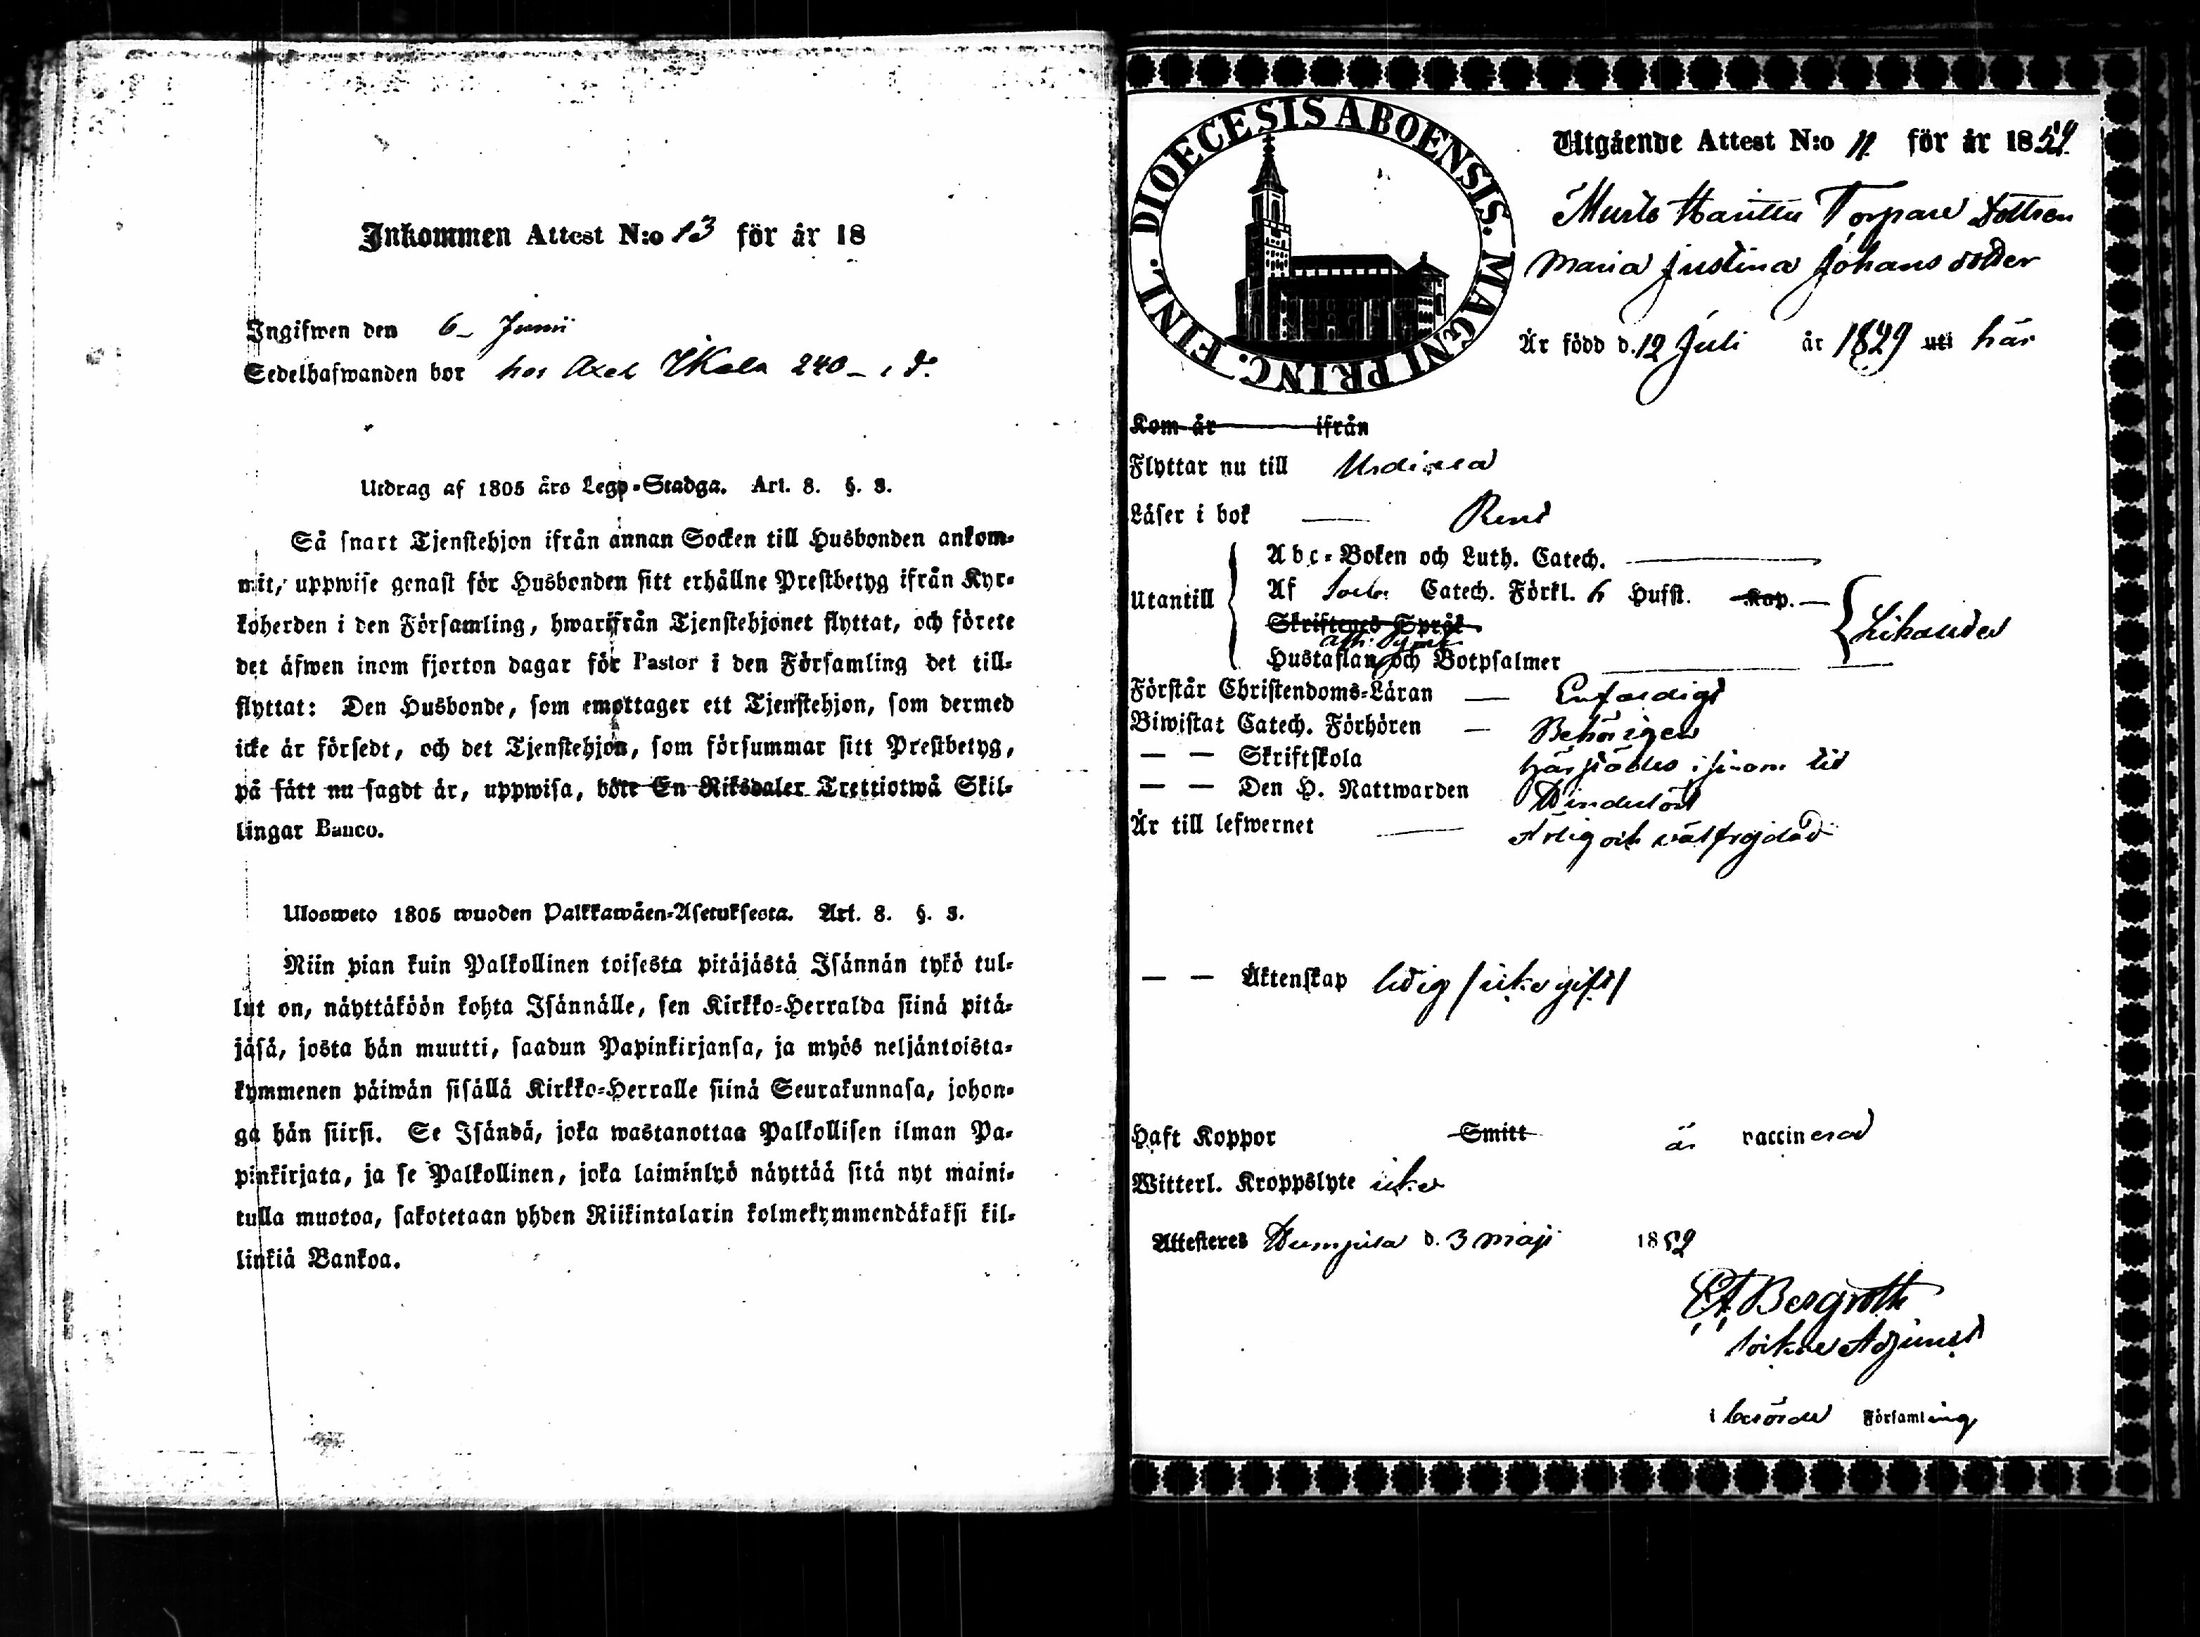 Inkommen Attest N:o 13 för år 18
Ingifwen den 6 Junii
Sedelhafwanden bor hos Axel 240
Utdrag af 1805 års Lego-Stadga. Art. 8. §. 3.
Så snart Tjenstehjon ifrån annan Socken till Husbonden ankom-
mit, uppwise genast för Husbonden sitt erhållne Prestbetyg ifrån Kyr-
koherden i den Församling, hwarifrån Tjenstehjonet flyttat, och förete
det äfwen inom fjorton dagar för Pastor i den Församling det till-
flyttat: Den Husbonde, som emottager ett Tjenstehjon, som dermed
icke är försedt, och det Tjenstehjon, som försummar sitt Prestbetyg,
på sätt nu sagdt är, uppwisa, böte En Riksdaler Trettiotwå Skil-
lingar Banco.
Ulosweto 1805 wuoden Palkkawäen-Asetuksesta. Art. 8. §. 3.
Niin pian kuin Palkollinen toisesta pitäjästä Isännän tykö tul-
lut on, näyttäköön kohta Isännälle, sen Kirkko-Herralda siinä pitä-
jäsä, josta hän muutti, saadun Papinkirjansa, ja myös neljäntoista-
kymmenen päiwän sisällä Kirkko-Herralle siinä Seurakunnasa, johon-
ga hän siirsi. Se Isändä, joka wastanottaa Palkollisen ilman Pa-
pinkirjata, ja se Palkollinen, joka laiminlyö näyttää sitä nyt maini-
tulla muotoa, sakotetaan yhden Riikintalarin kolmekymmendäkaksi kil-
linkiä Bankoa.
DIOECESIS ABOENSIS. MAGNI PRINC. FINL.
Utgående Attest N:o 11 för år 1859
Torpare Dottren
Maria Justina Johansdotter
Är född d. 12 Juli år 1829 uti här
Kom år ifrån
Flyttar nu till
Läser i bok Rent
Utantill
Abc-Boken och Luth. Catech.
Af Catech. Förkl. h Hufst. Kap.
Skriftenes Språk
Hustaflan och Botpsalmer
Förstår Christendoms-Läran Enfaldigt
Biwistat Catech. Förhören Behörigen
— — Skriftskola i sinom tid
— — Den H. Nattwarden
Är till lefwernet Ärlig och välfrejdad
— — Äktenskap ledig /icke gift/
Haft Koppor Smitt är vaccinerad
Witterl. Kroppslyte icke
Attesteres d. 3 maji 1859
Bergroth
Adjunct
i berörde Församling